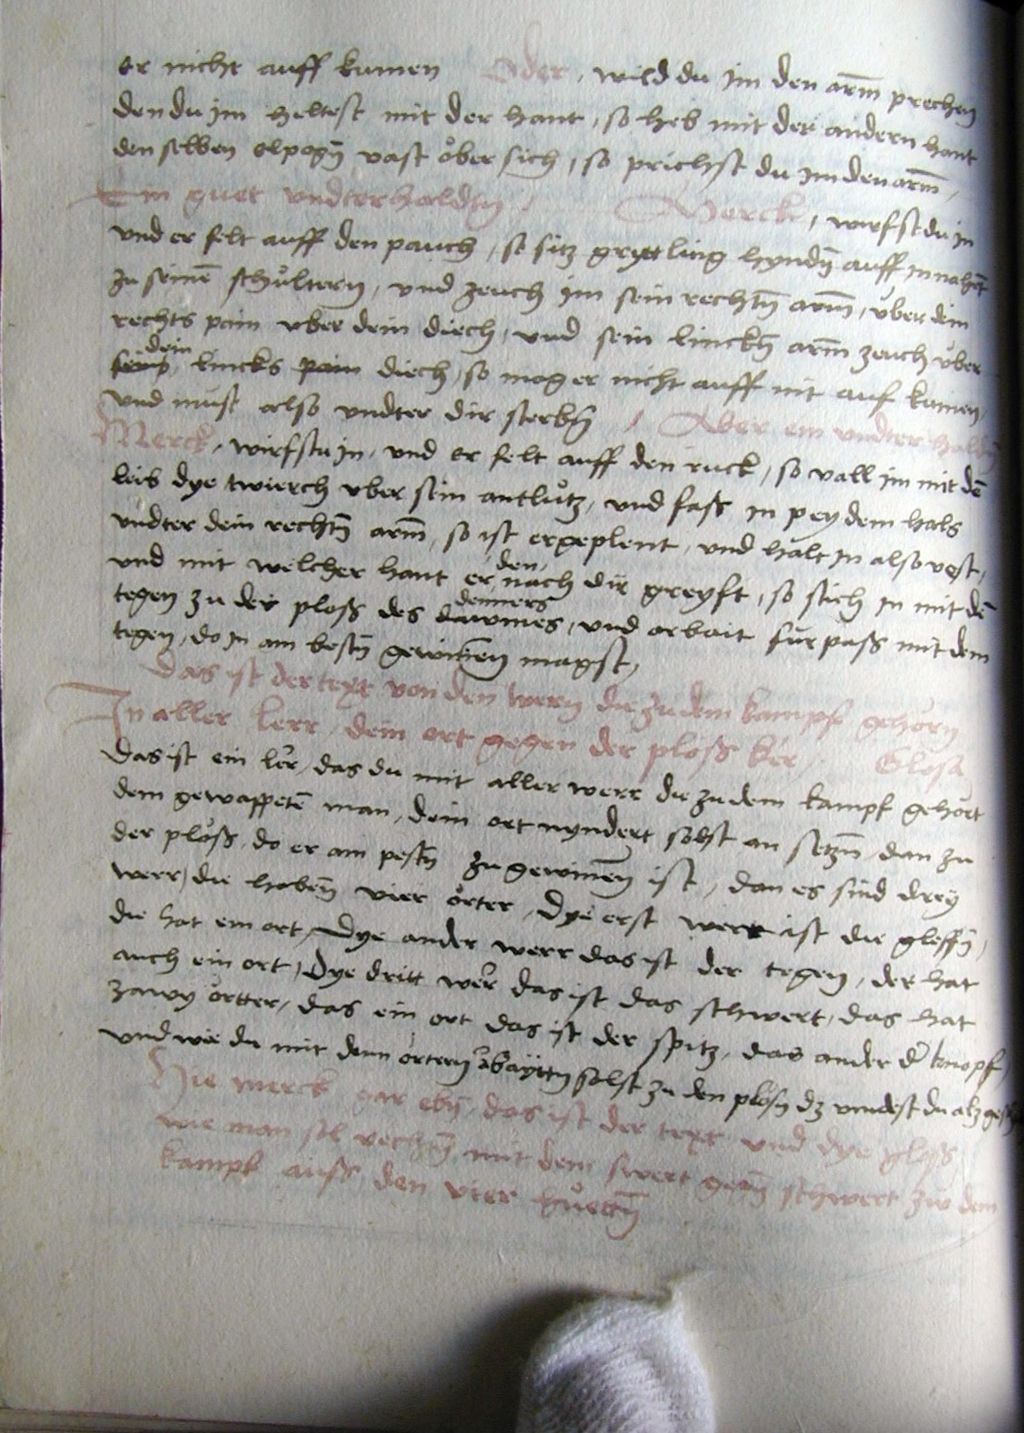 er nicht auff kumen Oder, wild du im den arm̄ prechen
den du im heltest mit der hant, so heb mit der andern hant
den selben elpogn̄ vast ober sich, so prichst du im den arm̄,
Ein guet vndterhaldn̄, Merck, wirfst du in
vnd er felt auff den pauch, so sitz gryttling hyndn̄ auff in nahet
zu seinē schultern, vnd zeuch im sein rechtn̄ arm̄, vber dein
rechts pain vber dein diech, vnd sein linckn̄ arm̄ zeuch vber
dein
sein lincks pain diech, so mag er nicht auff nit auf kumen,
vnd must also vndter dir sterbn̄ / Aber ein vndter haldn̄
Merck, wirfstu in, vnd er felt auff den ruck, so vall im mit dē
leib dye twierch vber sein antlutz, vnd fass in pey dem hals
vndter dein rechtn̄ arm̄, so ist er geplent, vnd halt in also vest,
den
vnd mit welcher hant er nach dir greyft, so stich in mit dē
denners
tegen zu der ploss des dawmes, vnd arbait furpass mit dem
tegen, do in am bestn̄ gewinnen magst,
Das ist der text von den wern die zu dem kampf gehorn
In aller lerr, dein ort gegen der ploss ker, Glosa
Das ist ein ler, das du mit aller werr die zu dem kampf gehort
dem gewappetē man, dein ort nyndert solst an setzn̄ dan zu
der ploss, do er am pestn̄ zu gewinnen ist, dan es sind drey
werr, die habenn̄ vier orter, Dye erst werr ist die gleffn̄,
die hat ein ort, Dye ander werr das ist der tegen, der hat
auch ein ort, Dye dritt wer das ist das schwert, das hat
zway ortter, das ein ort das ist der spitz, das ander d' knopf,
vnd wie du mit denn ortern arbaytn solst zu den plosn dz vindest du alz
Hie merck gar ebn̄, das ist der text vnd dye gloss
wie man sol vechtn̄ mit dem swert gegn̄ schwert zw dem
kampf auss den vier huettn̄